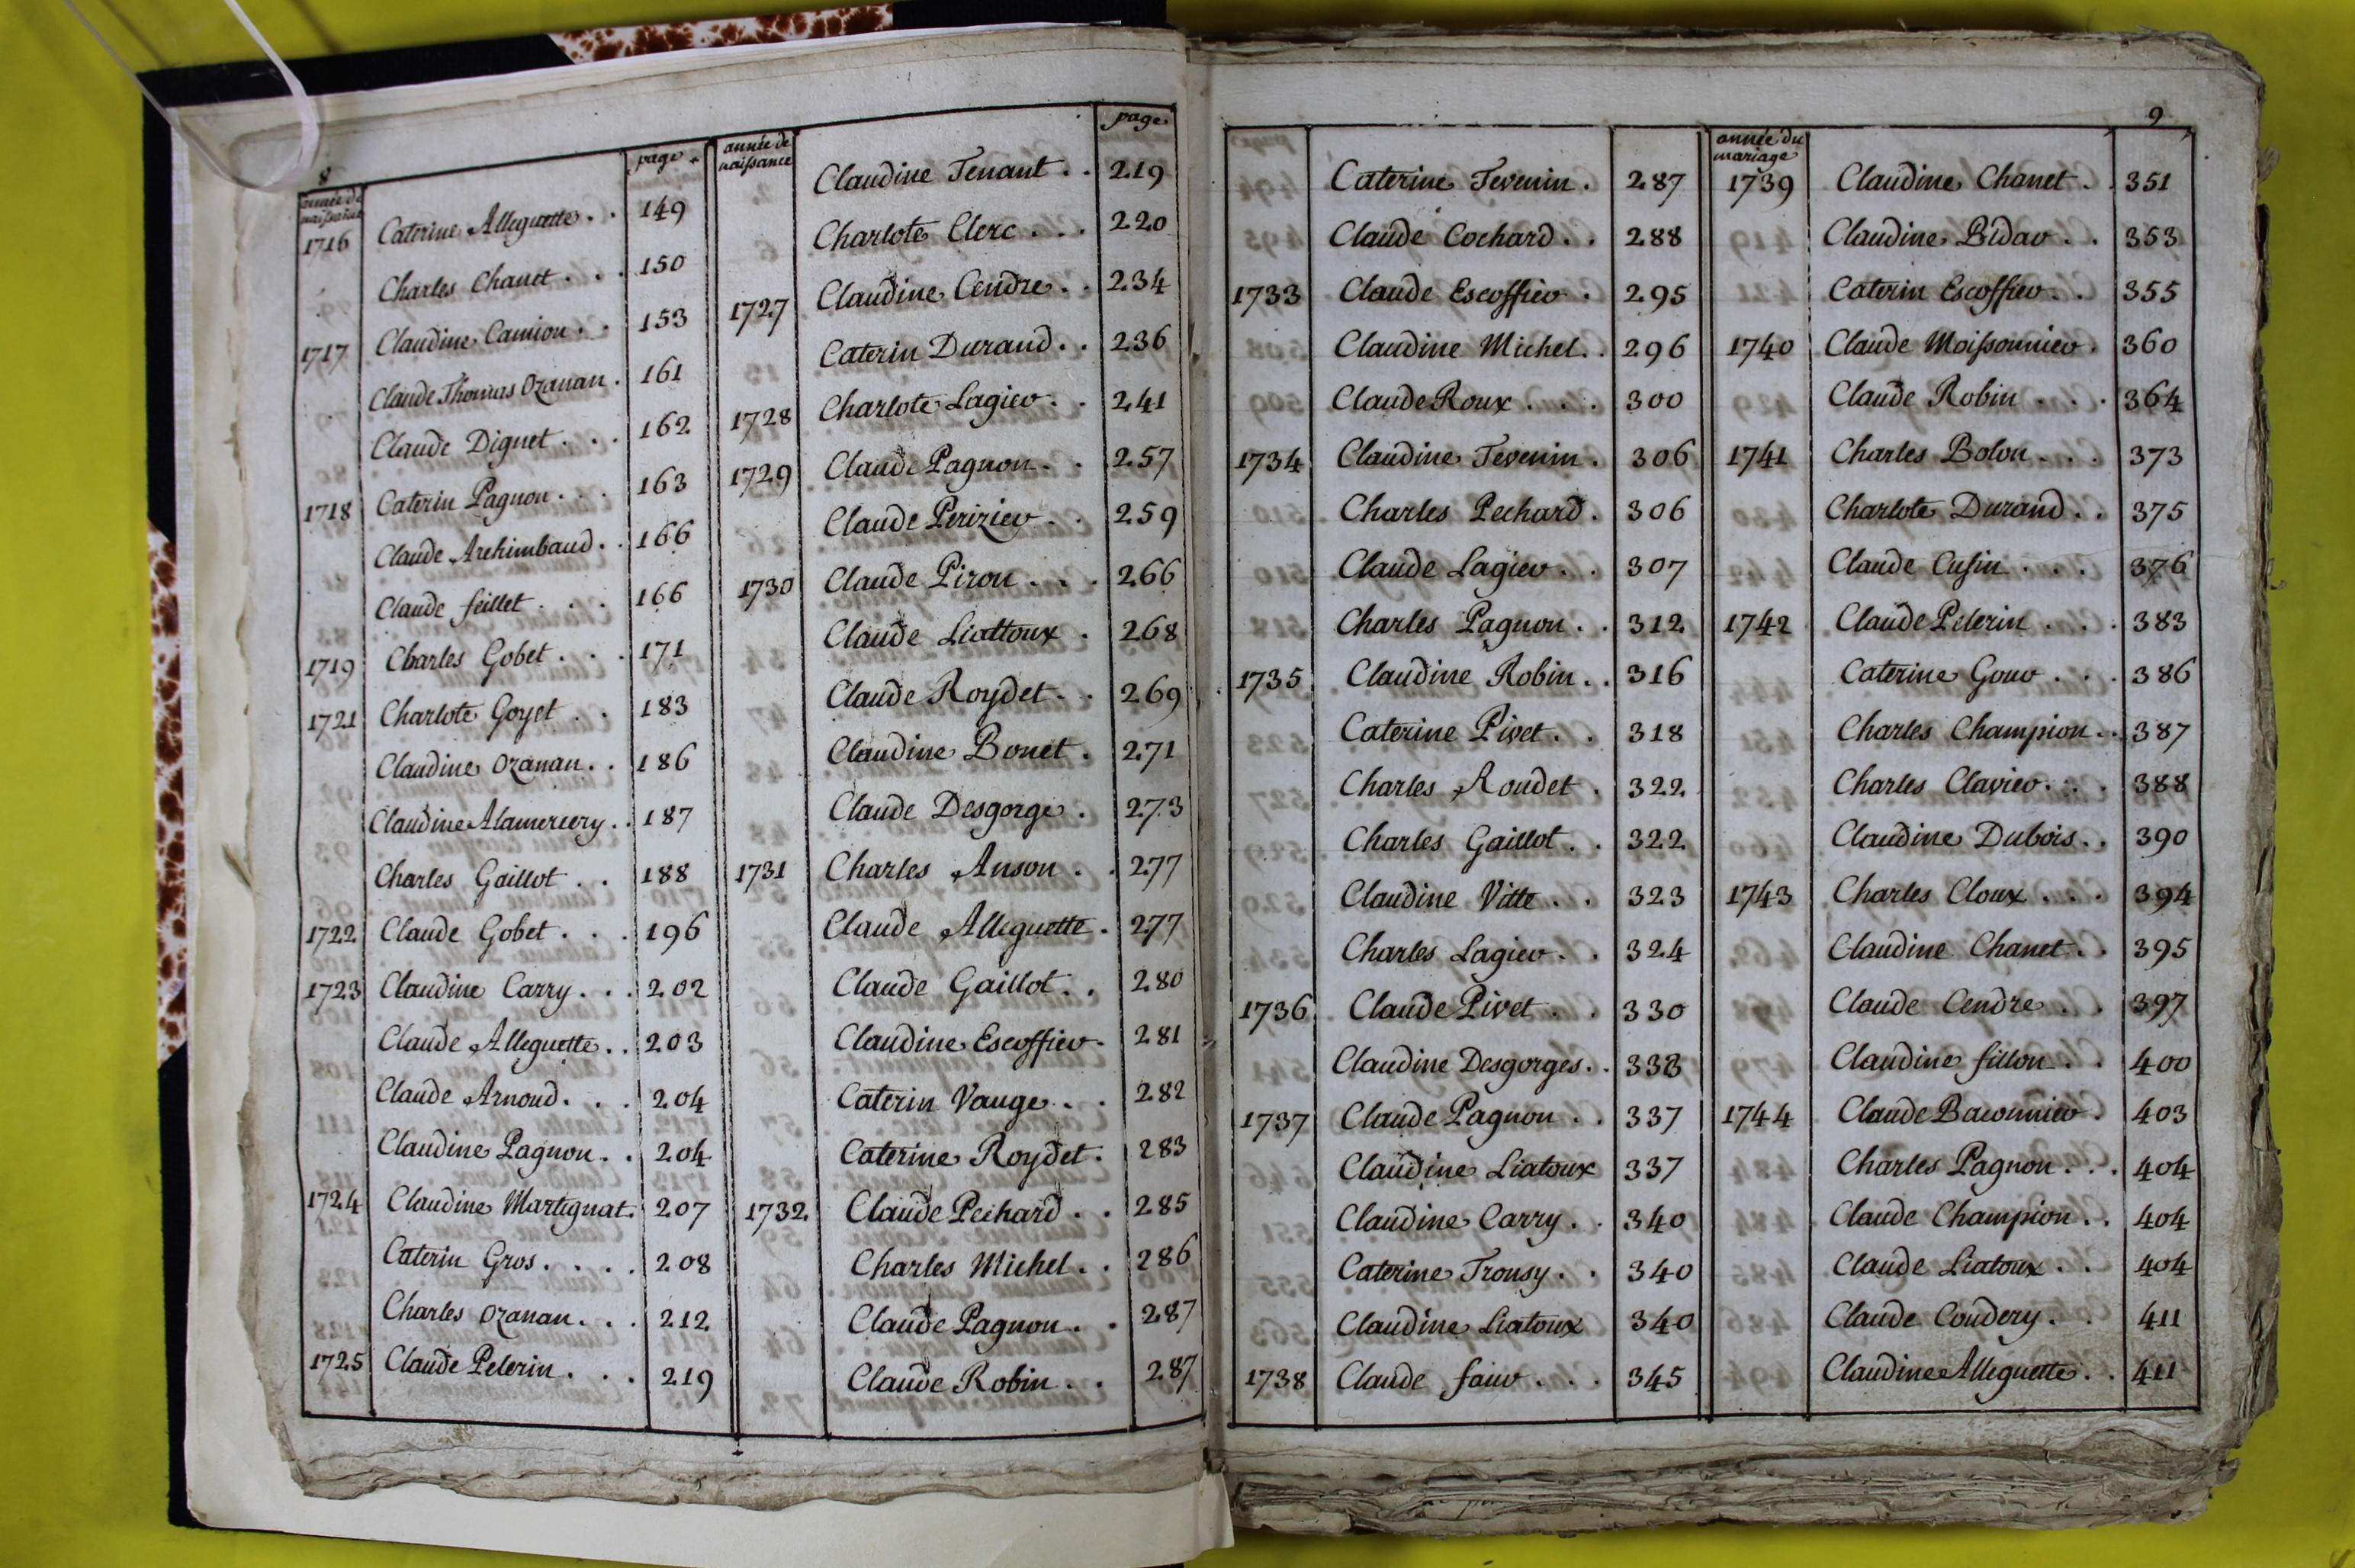 8
année de naissance page
1716 Caterine Alleguette . . 149
Charles Chanet . . . 150
Claudine Camion . . 153
1717 Claude Thomas Ozanan . 161
Claude Diguet . . . 162
Caterin Pagnon . . . 163
1718 Claude Archimbaud . . 166
Claude feillet . . . 166
1719 Charles Gobet . . . 171
1721 Charlote Goyet . . 183
Claudine Ozanan . . 186
Claudine Alamercery . . 187
Charles Gaillot . . 188
1722 Claude Gobet . . . 196
1723 Claudine Carry . . . 202
Claude Alleguette . . 203
Claude Arnoud . . . 204
Claudine Pagnon . . 204
1724 Claudine Martignat . 207
Caterin Gros . . . . 208
Charles Ozanan . . . 212
1725 Claude Pelerin . . . 219
année de naissance page
Claudine Tenant . . 219
Charlote Clerc . . . 220
1727 Claudine Cendre . . 234
Caterin Durand . . 236
1728 Charlote Lagier . . 241
1729 Claude Pagnon . . 257
Claude Perizier . . 259
1730 Claude Piron . . . 266
Claude Liattoux . 268
Claude Roydet . . 269
Claudine Bonet . 271
Claude Desgorge . 273
1731 Charles Anson . . 277
Claude Alleguette . 277
Claude Gaillot . . 280
Claudine Escoffier . 281
Caterin Vauge . . 282
Caterine Roydet . 283
1732 Claude Pechard . . 285
Charles Michel . . 286
Claude Pagnon . . 287
Claude Robin . . 287
9
Caterine Tevenin . 287
Claude Cochard . . 288
1733 Claude Escoffier . 295
Claudine Michel . . 296
Claude Roux . . . 300
1734 Claudine Tevenin . 306
Charles Pechard . 306
Claude Lagier . . 307
Charles Pagnon . . 312
1735 Claudine Robin . . 316
Caterine Pivet . . 318
Charles Roudet . 322
Charles Gaillot . . 322
Claudine Vitte . . 323
Charles Lagier . . 324
1736 Claude Pivet . . 330
Claudine Desgorges . . 333
1737 Claude Pagnon . . 337
Claudine Liatoux 337
Claudine Carry . . 340
Caterine Trousy . . 340
Claudine Liatoux 340
1738 Claude faur . . . 345
année du mariage
1739 Claudine Chanet . . 351
Claudine Bidar . . 353
Caterin Escoffier . . 355
1740 Claude Moissonnier . 360
Claude Robin . . . 364
1741 Charles Bolon . . . 373
Charlote Durand . . 375
Claude Cusin . . . 376
1742 Claude Pelerin . . . 383
Caterine Gour . . . 386
Charles Champion . . 387
Charles Clavier . . . 388
Claudine Dubois . . 390
1743 Charles Cloux . . . 394
Claudine Chanet . . 395
Claude Cendre . . 397
Claudine fillon . . 400
1744 Claude Baconnier . 403
Charles Pagnon . . . 404
Claude Champion . . 404
Claude Liatoux . . 404
Claude Coudery . . 411
Claudine Alleguette . . 411